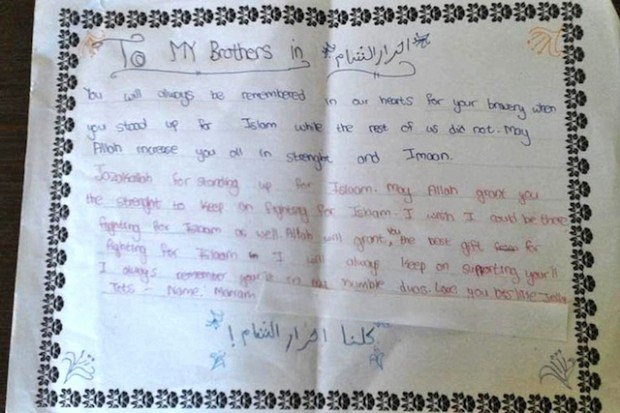 To MY Brothers in احرار الشام
You will always be remembered in our hearts for your bravery when
you stood up for Islam while the rest of us did not. May
Allah increase you all in strenght and Imaan.
Jazakallah for standing up for Islaam. May Allah grant you
the strenght to keep on fighting for Islaam. I wish I could be there
fighting for Islaam as well. Allah will grant you the best gift for
fighting for Islaam I will always keep on supporting your!!
I always remember your in my humble duas. Love you
Name. Mariam
كلنا احرار الشام!